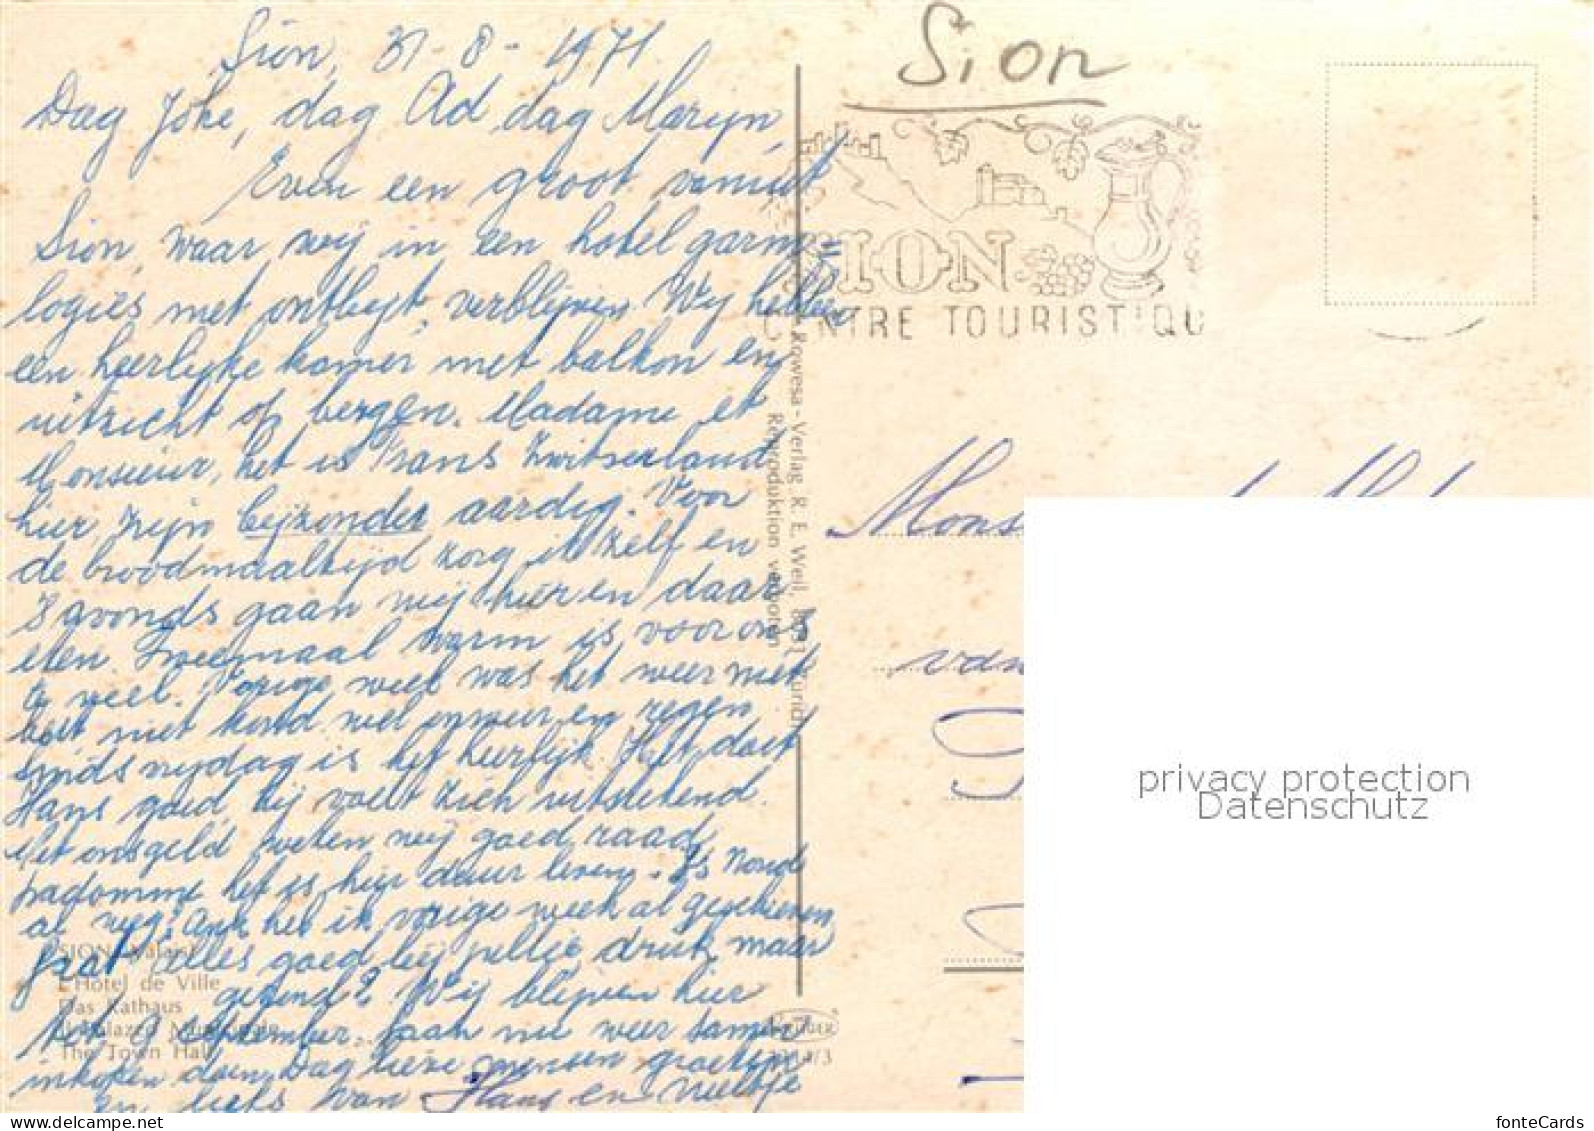 Sion, 31-8-1971
Dag Joke, dag Ad, dag Maryn,
Even een groot vanuit
Sion, waar wij in een hotel garni=
logies met ontbijt, verblijven. Wij hebben
een heerlijke kamer met balkon en
uitzicht op bergen. Madame et
Monsieur, het is Frans Zwitserland
hier, zijn bijzonder aardig. Voor
de broodmaaltijd zorg ik zelf en
's avonds gaan wij hier en daar
eten. Tweemaal warm is voor ons
te veel. Vorige week was het weer niet
best, niet koud wel onweer en regen
sinds vrijdag is het heerlijk. Het doet
Hans goed, hij voelt zich uitstekend.
Met ons geld weten wij goed raad,
het is hier duur leven. Is Noud
al weg? Ank heb ik vorige week al geschreven,
gaat alles goed bij jullie druk maar
gezond? Wij blijven hier
tot september, gaan nu weer samen
inkopen doen. Dag lieve mensen groetjes
en liefs van Hans en
SION (Valais)
L'Hôtel de Ville
Das Rathaus
Il Palazzo Municipale
The Town Hall
Rowesa - Verlag R. E. Weil, Zürich
Reproduktion verboten
14/3
Sion
SION
CENTRE TOURISTIQU
Mons
van
privacy protection
Datenschutz
www.delcampe.net
fonteCards